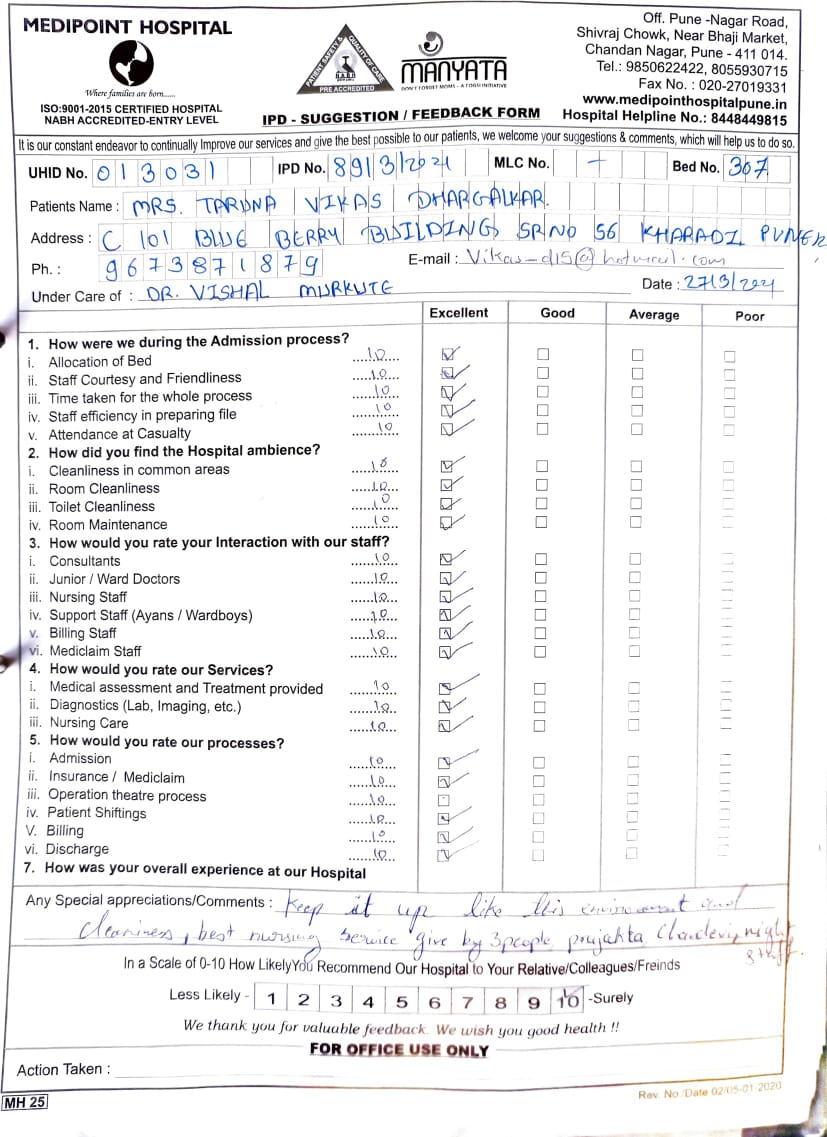 MEDIPOINT HOSPITAL
Where families are born......
ISO:9001-2015 CERTIFIED HOSPITAL
NABH ACCREDITED-ENTRY LEVEL
PATIENT SAFETY & QUALITY OF CARE
N.A.B.H
PRE ACCREDITED
MANYATA
DON'T FORGET MOMS - A FOGSI INITIATIVE
IPD - SUGGESTION / FEEDBACK FORM
Off. Pune -Nagar Road,
Shivraj Chowk, Near Bhaji Market,
Chandan Nagar, Pune - 411 014.
Tel.: 9850622422, 8055930715
Fax No. : 020-27019331
www.medipointhospitalpune.in
Hospital Helpline No.: 8448449815
It is our constant endeavor to continually Improve our services and give the best possible to our patients, we welcome your suggestions & comments, which will help us to do so.
UHID No. 013031 IPD No. 891/3/2021 MLC No. Bed No. 307
Patients Name : MRS. TARUNA VIKAS DHARGALKAR.
Address : C 101 BLUE BERRY BUILDING SR NO 56 KHARADI PUNE
Ph. : 9673871879 E-mail : Vikas_d15@hotmail.com
Under Care of : DR. VISHAL MURKUTE Date : 27/3/2021
Excellent Good Average Poor
1. How were we during the Admission process?
i. Allocation of Bed ....10....
ii. Staff Courtesy and Friendliness ....10....
iii. Time taken for the whole process ....10....
iv. Staff efficiency in preparing file ....10....
v. Attendance at Casualty ....10....
2. How did you find the Hospital ambience?
i. Cleanliness in common areas ....10....
ii. Room Cleanliness ....10....
iii. Toilet Cleanliness ....10....
iv. Room Maintenance ....10....
3. How would you rate your Interaction with our staff?
i. Consultants ....10....
ii. Junior / Ward Doctors ....10....
iii. Nursing Staff ....10....
iv. Support Staff (Ayans / Wardboys) ....10....
v. Billing Staff ....10....
vi. Mediclaim Staff ....10....
4. How would you rate our Services?
i. Medical assessment and Treatment provided ....10....
ii. Diagnostics (Lab, Imaging, etc.) ....10....
iii. Nursing Care ....10....
5. How would you rate our processes?
i. Admission ....10....
ii. Insurance / Mediclaim ....10....
iii. Operation theatre process ....10....
iv. Patient Shiftings ....10....
V. Billing ....10....
vi. Discharge ....10....
7. How was your overall experience at our Hospital
Any Special appreciations/Comments : Keep it up like this environment and
cleaniness, best nursing service give by 3 people, night
staff.
In a Scale of 0-10 How Likely You Recommend Our Hospital to Your Relative/Colleagues/Freinds
Less Likely - 1 2 3 4 5 6 7 8 9 10 -Surely
We thank you for valuable feedback. We wish you good health !!
FOR OFFICE USE ONLY
Action Taken :
MH 25
Rev. No./Date 02/05-01-2020